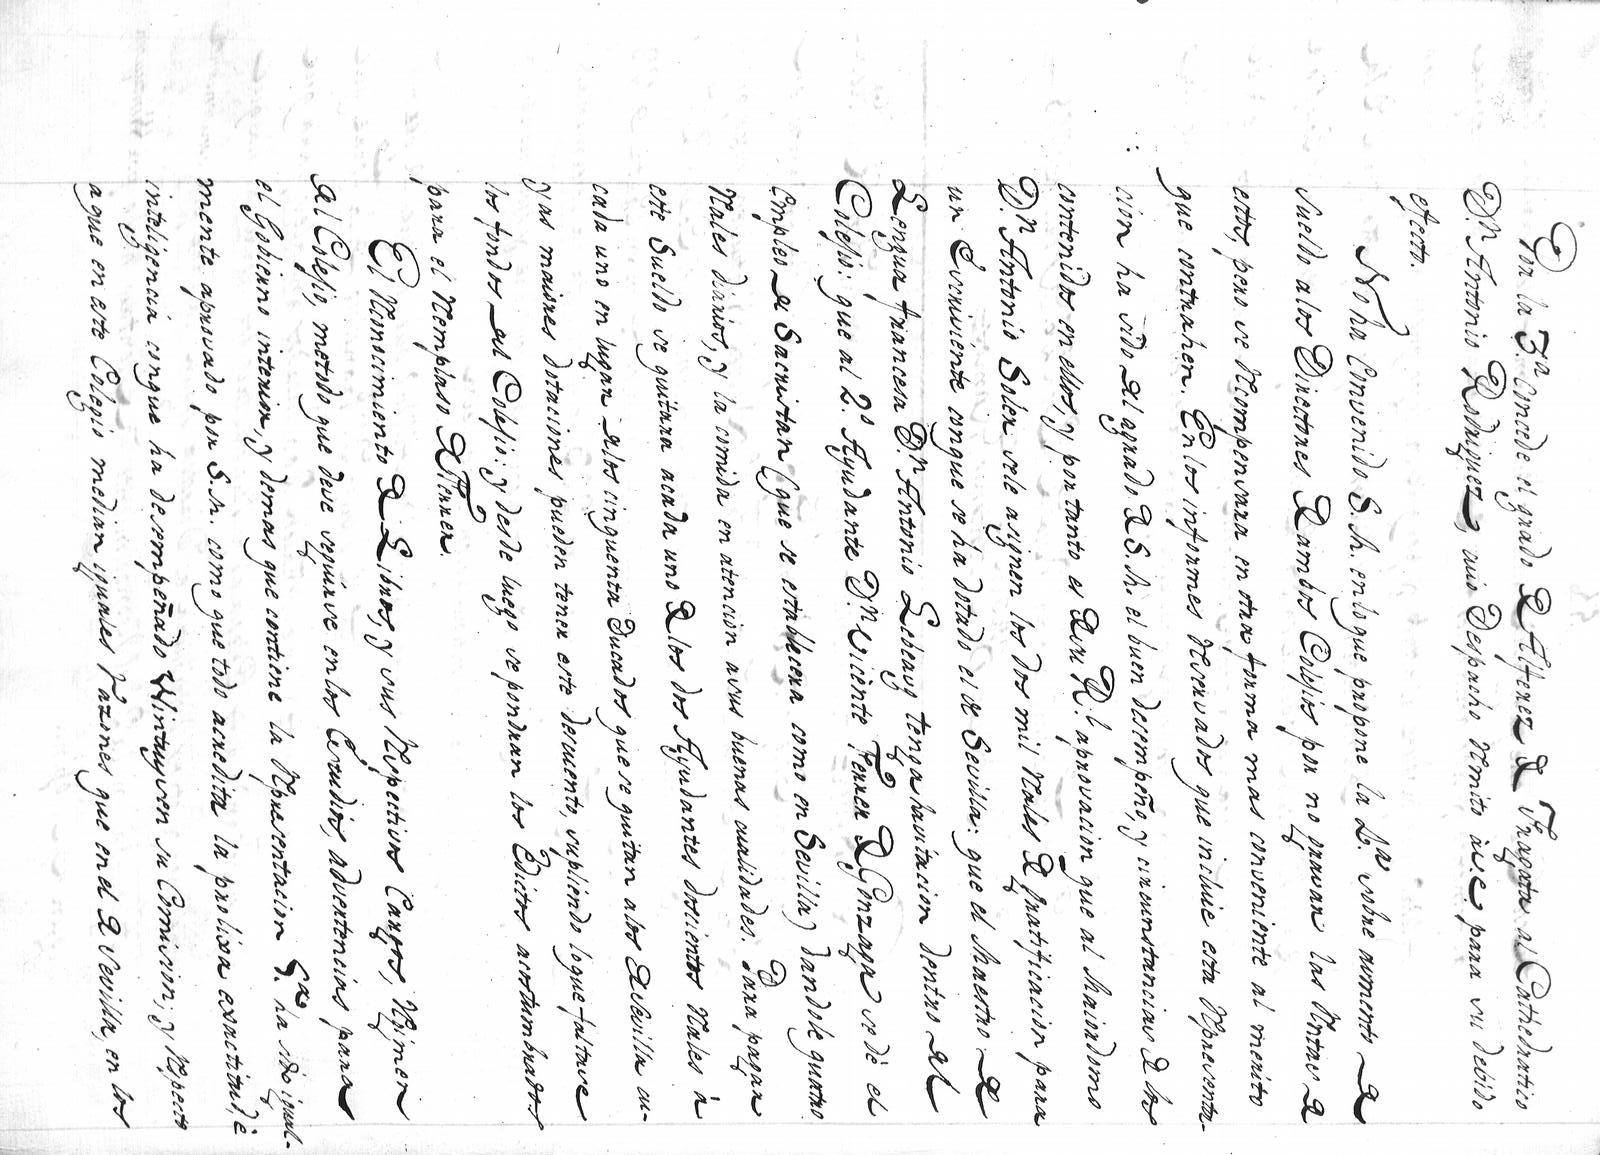 Por la 3ª concede el grado de Alferez de Fragata al Cathedratico
Dn. Antonio Rodriguez, cuio Despacho remito à V.E. para su debido
efecto.
No ha convenido S.M. en lo que propone la 4ª sobre aumento de
sueldo a los Directores de ambos Colejios por no gravar las Rentas de
estos, pero se recompensara en otra forma mas conveniente al merito
que contrahen. En los informes reservados que incluie esta representa-
cion ha sido del agrado de S.M. el buen desempeño, y circunstancias de los
contenidos en ellos, y por tanto es de su Rl. aprovacion que al Maiordomo
Dn. Antonio Soler se le asignen los dos mil reales de gratificacion para
un Escriviente conque se ha dotado el de Sevilla: que el Maestro de
Lengua francesa Dn. Antonio Lebeau tenga havitacion dentro del
Colejio: que al 2º Ayudante Dn. Vicente Ferrer de Gonzaga se dè el
Empleo de Sacristan (que se establecera como en Sevilla) dandole quatro
reales diarios, y la comida en atencion a sus buenas qualidades. Para pagar
este Sueldo se quitara a cada uno de los dos Ayudantes doscientos reales à
cada uno en lugar de los cinquenta Ducados que se quitan a los de Sevilla cu-
yas maiores dotaciones pueden tener este descuento, supliendo loque faltase
los fondos del Colejio: y desde luego se pondran los Edictos acostumbrados
para el remplaso de Ferrer.
El reconocimiento de Libros, y sus respectivos Cargos, regimen
del Colejio, metodo que deve seguirse en los Estudios, advertencias para
el Gobierno interior, y demas que contiene la representacion 5ª ha sido igual-
mente aprovado por S.M. como que todo acredita la prolixa exactitud, è
inteligencia conque ha desempeñado Wintuysen su Comision; y respecto
a que en este Colegio median iguales razones que en el de Sevilla, en los